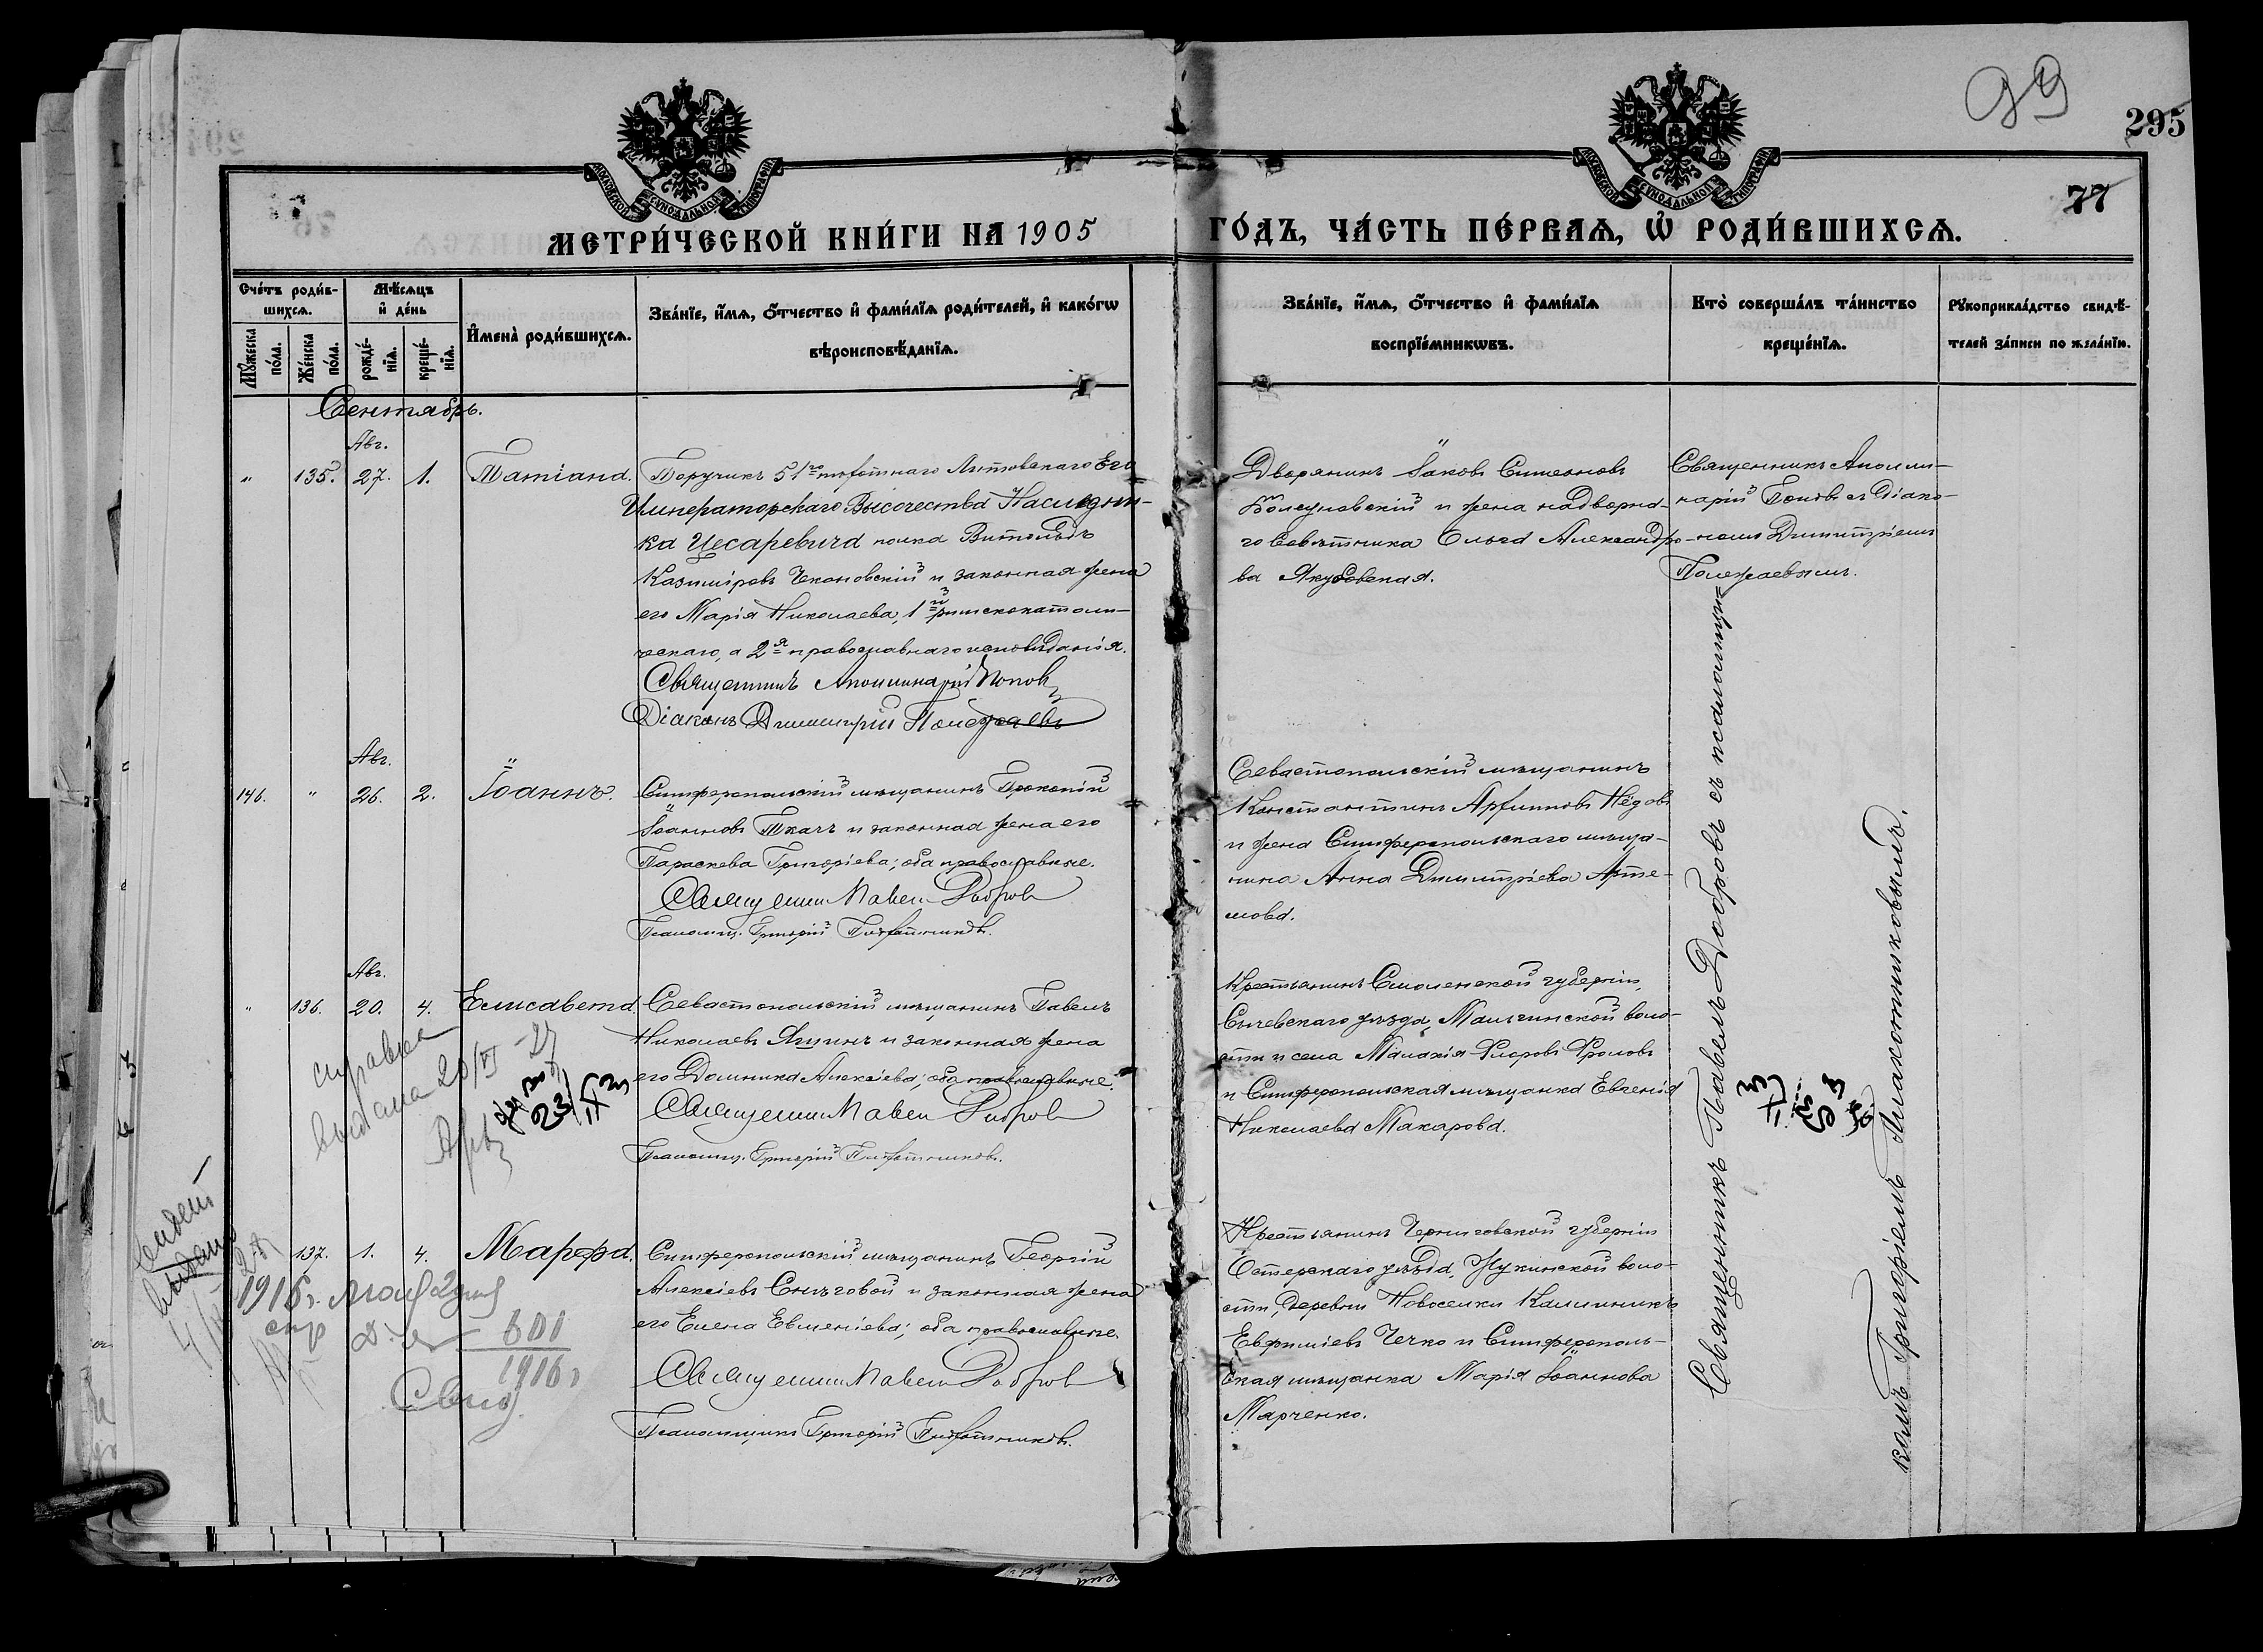 99
295
77
МОСКОВСКОЙ СУНОДАЛЬНОЙ ТИПОГРАФІИ
МОСКОВСКОЙ СУНОДАЛЬНОЙ ТИПОГРАФІИ
МЕТРИ́ЧЕСКОЙ КНИ́ГИ НА 1905
ГО́ДЪ, ЧА́СТЬ ПЕ́РВАѦ, Ѡ҆ РОДИ́ВШИХСѦ.
Сче́тъ роди́в-
шихсѧ.
Мꙋ́жеска по́ла.
Же́нска по́ла.
Мѣ́сяцъ
и҆ де́нь
рожде́-
нїѧ.
креще́-
нїѧ.
И҆мена̀ роди́вшихсѧ.
Зва́нїе, и҆́мѧ, ѻ҆́тчество и҆ фами́лїѧ роди́телей, и҆ како́гѡ
вѣроисповѣ́данїѧ.
Зва́нїе, и҆́мѧ, ѻ҆́тчество и҆ фами́лїѧ
воспрїе́мникѡвъ.
Кто̀ соверша́лъ та́инство
креще́нїѧ.
Рꙋкоприкла́дство свидѣ́-
телей за́писи по жела́нїю.
Сентябрь.
Авг.
" 135. 27. 1. Татіана.
Поручикъ 51го пѣхотнаго Литовскаго Его
Императорскаго Высочества Наслѣдни-
ка Цесаревича полка Витольдъ
Казиміровъ Чекановскій и законная жена
его Марія Николаева, 1й римскокатоли-
ческаго, а 2я православнаго исповѣданія.
Священникъ Аполлинарій Поповъ
Діаконъ Димитрій Полежаевъ
Дворянинъ Іаковъ Симеоновъ
Колсуновскій и жена надворна-
го совѣтника Ольга Александро-
ва Якубовская.
Священникъ Аполли-
нарій Поповъ съ Діако-
номъ Димитріемъ
Полежаевымъ.
Авг.
146. " 26. 2. Іоаннъ.
Симферопольскій мѣщанинъ Прокопій
Іоанновъ Ткачъ и законная жена его
Параскева Григоріева; оба православные.
Священникъ Павелъ Добровъ
Псаломщ. Григорій Плахотниковъ.
Севастопольскій мѣщанинъ
Константинъ Архиповъ Нѣдовъ
и жена Симферопольскаго мѣща-
нина Анна Димитріева Арте-
мова.
Авг.
" 136. 20. 4. Елисавета.
Севастопольскій мѣщанинъ Павелъ
Николаевъ Яшинъ и законная жена
его Домника Алексіева; оба православные.
Священникъ Павелъ Добровъ
Псаломщ. Григорій Плахотниковъ.
Крестьянинъ Смоленской губерніи,
Сычевскаго уѣзда, Мальгинской воло-
сти и села Малахія Флоровъ Фроловъ
и Симферопольская мѣщанка Евгенія
Николаева Макарова.
справка
выдана 20/VI-27
23/IX
137. 1. 4. Марфа.
Симферопольскій мѣщанинъ Георгій
Алексіевъ Снѣговой и законная жена
его Елена Евменіева; оба православные.
Священникъ Павелъ Добровъ
Псаломщикъ Григорій Плахотниковъ.
Крестьянинъ Черниговской губерніи
Остерскаго уѣзда, Жукинской воло-
сти, деревни Новоселки Каллиникъ
Евфиміевъ Чечко и Симферополь-
ская мѣщанка Марія Іоаннова
Марченко.
выдано
1916г.
601
1916г
Священникъ Павелъ Добровъ съ псаломщи-
комъ Григоріемъ Плахотниковымъ.